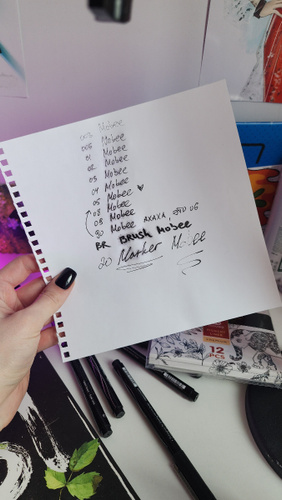 003 Mobee
005 Mobee
01 Mobee
02 Mobee
03 Mobee
04 Mobee
05 Mobee
08 Mobee
08 Mobee
20 Mobee АХАХА, ЭТО 06
BR BRUSH Mobee
20 Marker Mobee
12